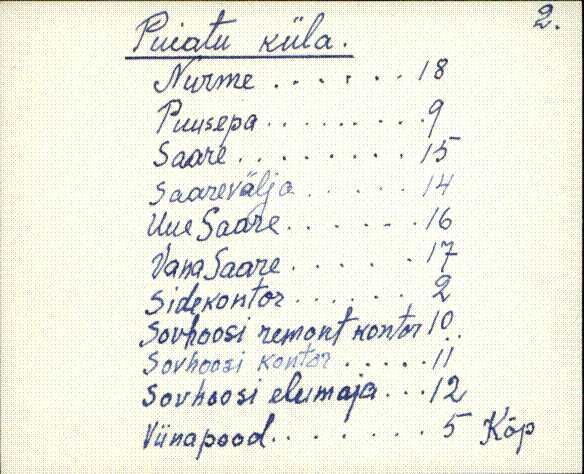 2.
Puiatu küla.
Nurme ....... 18
Puusepa ........ 9
Saare ......... 15
Saarevälja ...... 14
Uue Saare ....... 16
Vana Saare ....... 17
Sidekontor ...... 2
Sovhoosi remont kontor 10
Sovhoosi kontor ..... 11
Sovhoosi elumaja ... 12
Viinapood ........ 5 Kõp